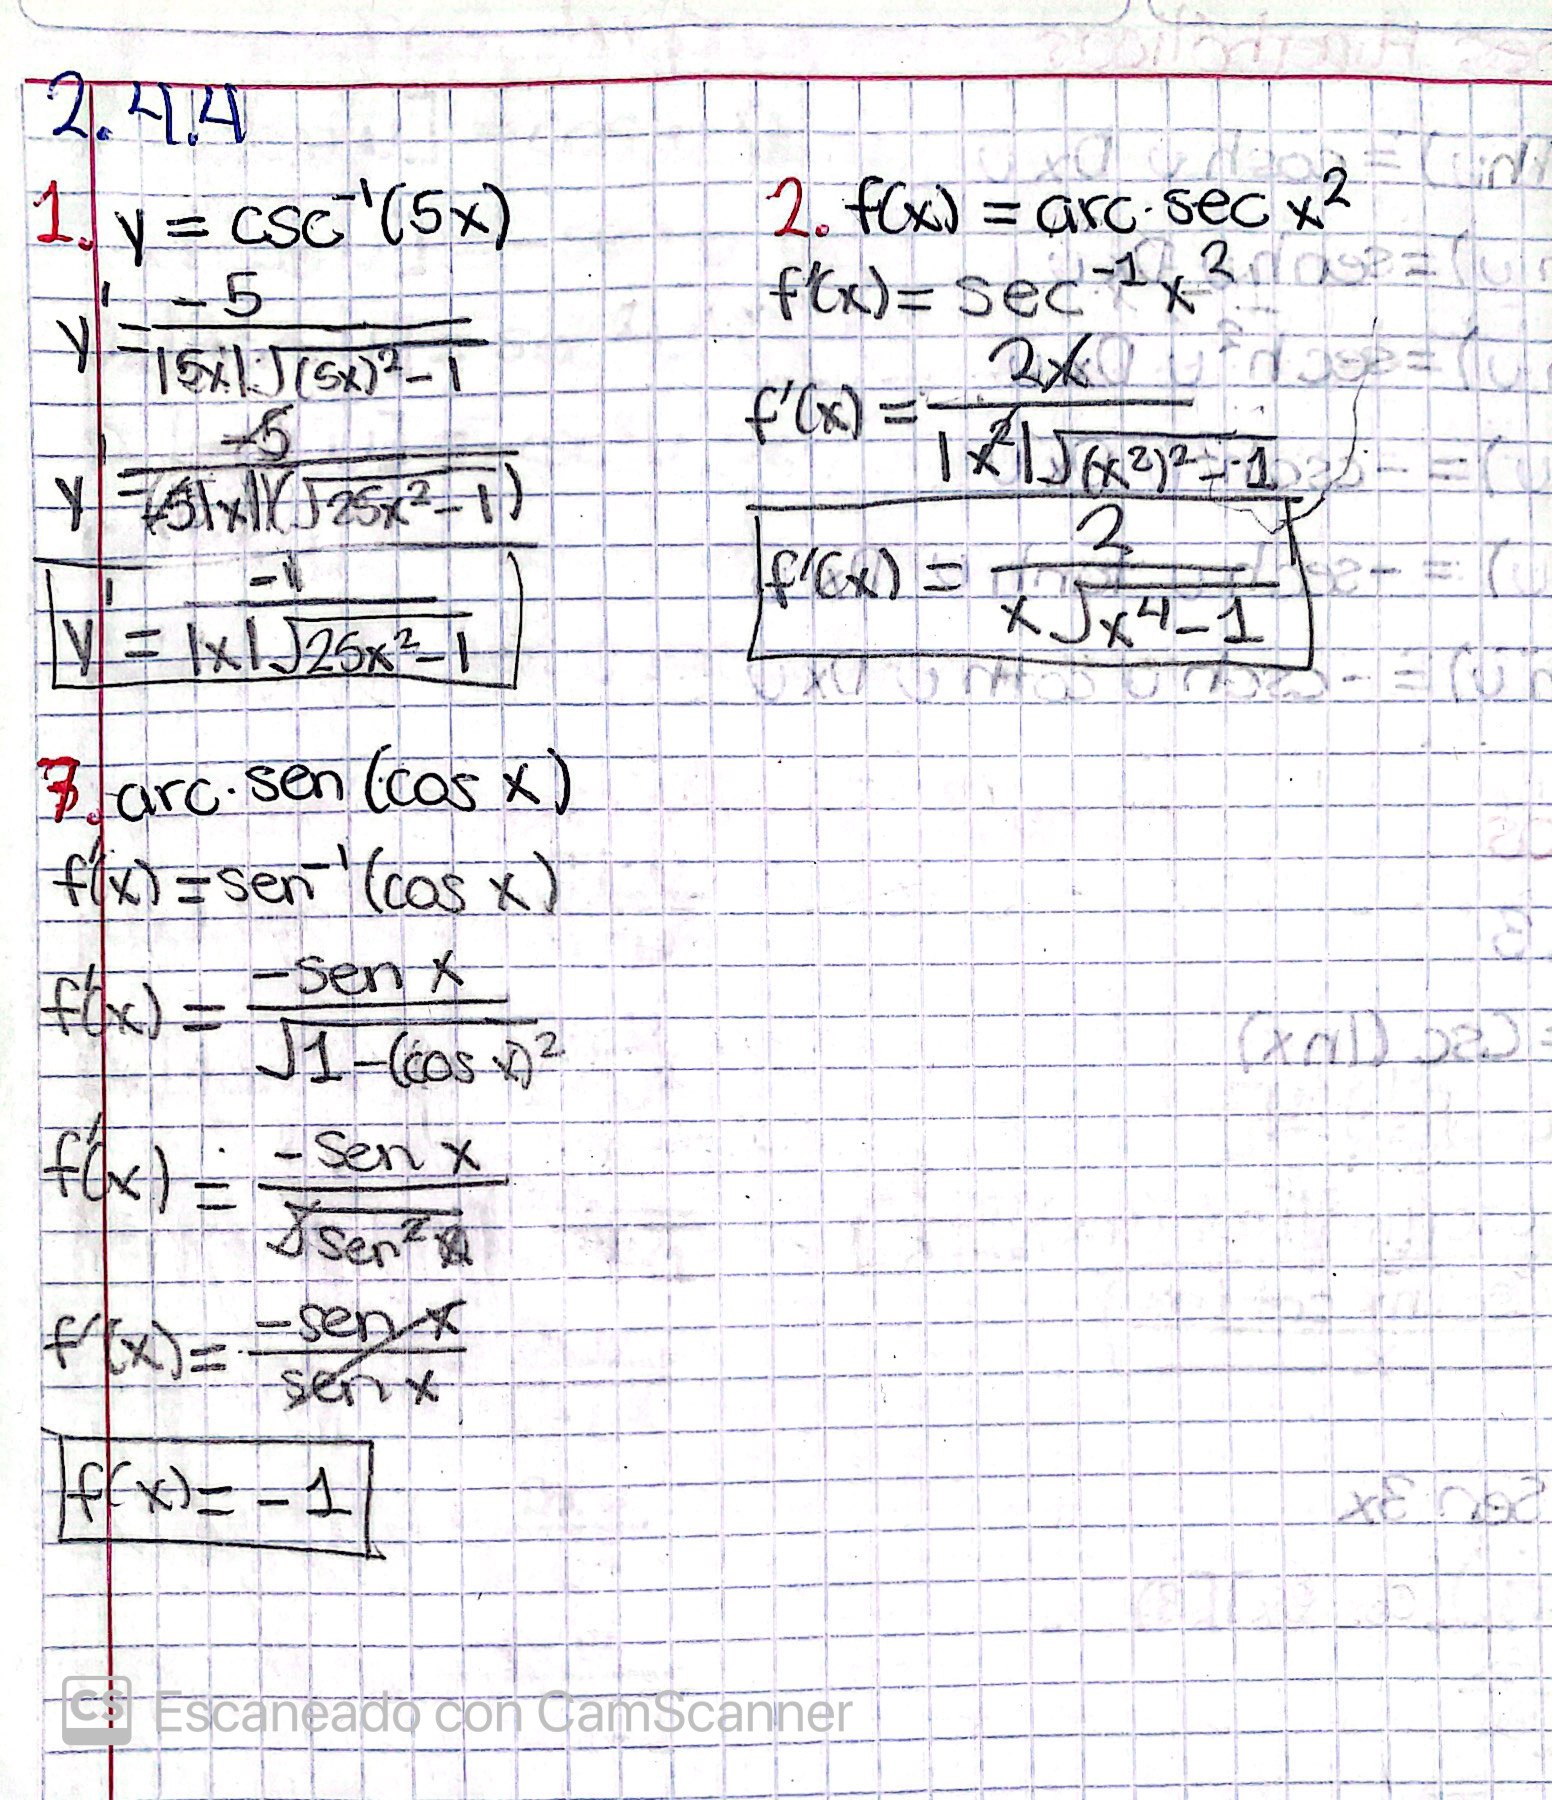 2.4.4
1. y = csc⁻¹(5x)
y' = -5 / |5x| √(5x)² - 1
y' = -5 / (5|x|)(√25x² - 1)
y' = -1 / |x| √25x² - 1
2. f(x) = arc·sec x²
f'(x) = sec⁻¹ x²
f'(x) = 2x / |x²| √(x²)² - 1
f'(x) = 2 / x √x⁴ - 1
7. arc·sen (cos x)
f'(x) = sen⁻¹ (cos x)
f'(x) = -sen x / √1 - (cos x)²
f'(x) = -sen x / √sen² x
f'(x) = -sen x / sen x
f(x) = -1
CS Escaneado con CamScanner